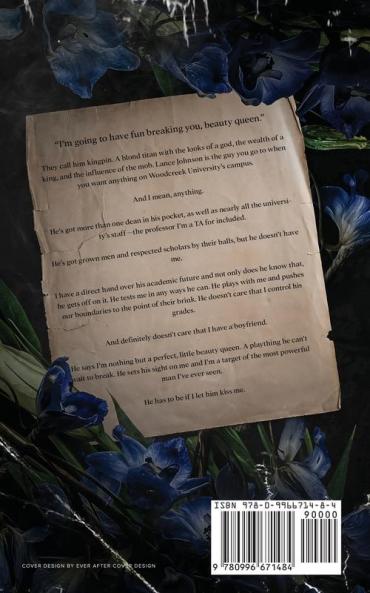 "I'm going to have fun breaking you, beauty queen."
They call him kingpin. A blond titan with the looks of a god, the wealth of a
king, and the influence of the mob. Lance Johnson is the guy you go to when
you want anything on Woodcreek University's campus.
And I mean, anything.
He's got more than one dean in his pocket, as well as nearly all the universi-
ty's staff—the professor I'm a TA for included.
He's got grown men and respected scholars by their balls, but he doesn't have
me.
I have a direct hand over his academic future and not only does he know that,
he gets off on it. He tests me in any ways he can. He plays with me and pushes
our boundaries to the point of their brink. He doesn't care that I control his
grades.
And definitely doesn't care that I have a boyfriend.
He says I'm nothing but a perfect, little beauty queen. A plaything he can't
wait to break. He sets his sight on me and I'm a target of the most powerful
man I've ever seen.
He has to be if I let him kiss me.
ISBN 978-0-9966714-8-4
90000
9 780996 671484
COVER DESIGN BY EVER AFTER COVER DESIGN